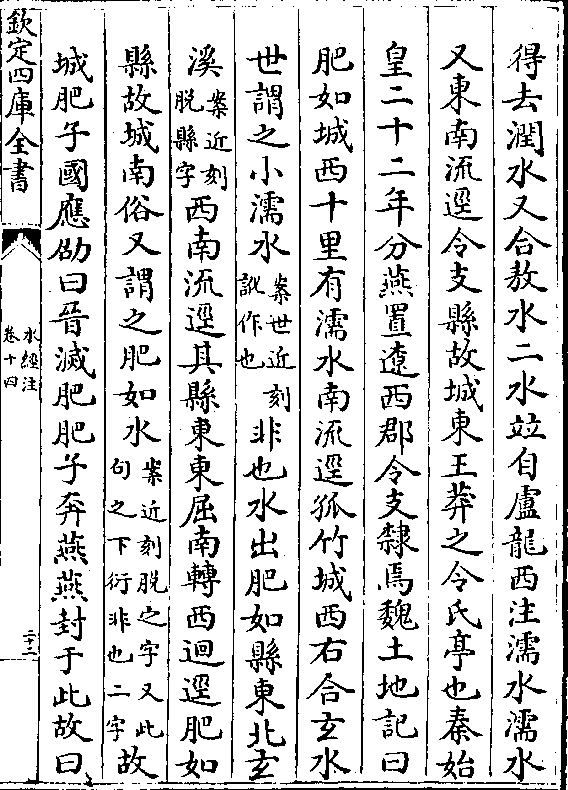 得去潤水又合敖水二水竝自盧龍西注濡水濡水
又東南流逕令支縣故城東王莽之令氏亭也秦始
皇二十二年分燕置遼西郡令支隸焉魏土地記曰
肥如城西十里有濡水南流逕孤竹城西右合玄水
世謂之小濡水案世近刻訛作也非也水出肥如縣東北玄
溪案近刻脱縣字西南流逕其縣東東屈南轉西迴逕肥如
縣故城南俗又謂之肥如水案近刻脱之字又此句之下衍非也二字故
城肥子國應劭曰晉滅肥肥子奔燕燕封于此故曰
欽定四庫全書
水經注
卷十四
二十二